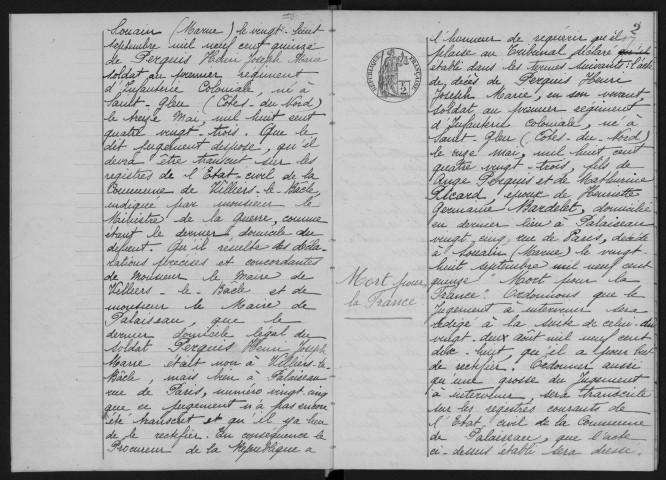 Souain (Marne) le vingt-huit
septembre mil neuf cent quinze
de Perquis Henri Joseph Marie
soldat au premier régiment
d'Infanterie Coloniale, né à
Saint-Glen (Côtes-du-Nord)
le treize Mai, mil huit cent
quatre vingt-trois. Que le
dit jugement dispose, qu'il
devra être transcrit sur les
registres de l'Etat-civil de la
Commune de Villiers-le-Bâcle
indiqué par monsieur le
Ministre de la Guerre, comme
étant le dernier domicile du
défunt. Qu'il résulte des décla-
-rations précises et concordantes
de Monsieur le Maire de
Villiers-le-Bâcle et de
monsieur le Maire de
Palaiseau, que le
dernier domicile légal du
soldat Perquis Henri Joseph
Marie était non à Villiers-le-
Bâcle, mais bien à Palaiseau
rue de Paris, numéro vingt-cinq
que ce jugement n'a pas encore
été transcrit et qu'il y a lieu
de le rectifier. En conséquence le
Procureur de la République a
2
RÉPUBLIQUE FRANÇAISE
l'honneur de requérir qu'il
plaise au Tribunal déclaré
établi dans les termes suivants: l'acte
de décès de Perquis Henri
Joseph Marie, en son vivant
soldat au premier régiment
d'Infanterie coloniale, né à
Saint-Glen (Côtes-du-Nord)
le treize mai, mil huit cent
quatre vingt-trois, fils de
Ange Perquis et de Mathurine
Picard, époux de Henriette
Germaine Bardelet, domicilié
en dernier lieu à Palaiseau
vingt cinq rue de Paris, décédé
à Souain (Marne) le vingt-
huit septembre mil neuf cent
quinze. Mort pour la
France. Ordonnons que le
Jugement à intervenir sera
rédigé à la suite de celui du
vingt-deux août mil neuf cent
dix-huit, qu'il a pour but
de rectifier. Ordonner aussi
qu'une grosse du Jugement
à intervenir, sera transcrite
sur les registres courants de
l'Etat-civil de la Commune
de Palaiseau, que l'acte
ci-dessus établi sera dressé.
Mort pour
la France